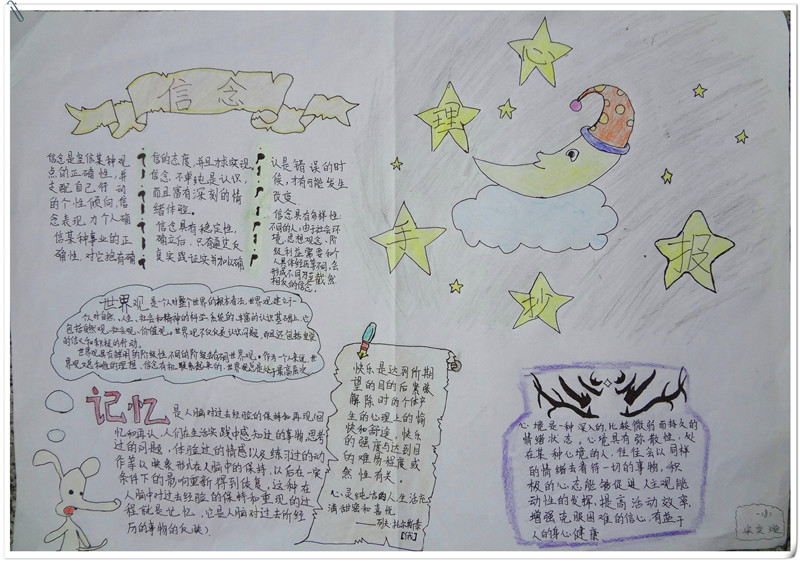 信念
信念是坚信某种观
点的正确性,并
支配自己行动
的个性倾向,信
念表现为个人确
信某种事业的正
确性,对它抱有确
信的态度,并且力求实现
信念不单纯是认识,
而且富有深刻的情
绪体验。
信念具有稳定性,
确立后,只有通过反
复实践证实并加以确
认是错误的时
候,才有可能发生
改变.
信念具有多样性
不同的人,由于社会环
境,思想观念,阶
级利益需要和个
人具体经历等不同,会
形成不同乃至截然
相反的信念。
心
理
手
抄
报
世界观 是一个人对整个世界的根本看法,世界观建立于一
个人对自然、人生、社会和精神的科学、系统的、丰富的认识基础上,它
包括自然观,社会观,价值观。世界观不仅仅是认识问题,而且还包括坚定
的信念和积极的行动。
世界观具有鲜明的阶级性,不同的阶级会有不同世界观。作为一个人来说,世
界观又总和他的理想、信念有机联系起来的,世界观总是处于最高层次
记忆 是人脑对过去经验的保持和再现(回
忆和再认,人们在生活实践中感知过的事物,思考
过的问题,体验过的情感以及练习过的动
作等以映象形式在人脑中的保持,以后在一定
条件下的影响重新得到恢复,这种在
人脑中对过去经验的保持和重现的过
程就是记忆,它是人脑对过去所经
历的事物的反映)
快乐是达到所期
望的目的后紧张
解除时的个体产
生的心理上的愉
快和舒适,快乐
的强度与达到目
的难易程度或
然性有关。
心灵纯洁的人,生活充
满甜蜜和喜悦
——列夫托尔斯泰
【俄】
心境是一种深入的,比较微弱而持久的
情绪状态。心境具有弥散性,处
在某种心境的人,往往会以同样
的情绪去看待一切的事物,积
极的心态能够促进人主观能
动性的发挥,提高活动效率,
增强克服困难的信心,有益于
人的身心健康
一小